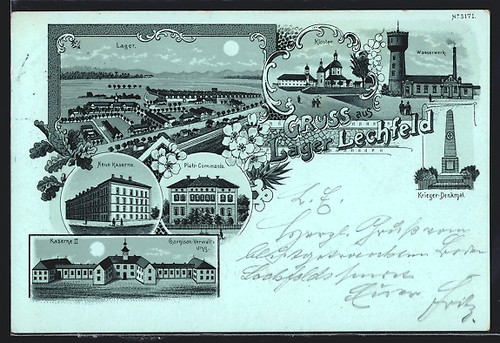 No. 5171.
Lager.
Kloster
Wasserwerk.
GRUSS aus
Lager Lechfeld
Neue Kaserne.
Platz-Commando.
Krieger-Denkmal.
Kaserne II
Garnison-Verwalt-
ung.
L. E.
Herzl. Gruß vom
Lechfelds
Euer Fritz